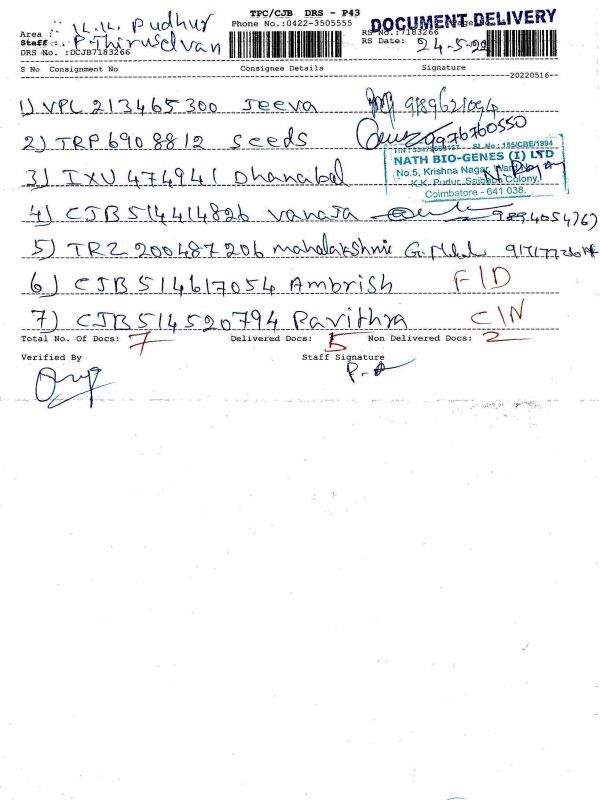 TPC/CJB DRS - P43
DOCUMENT DELIVERY
Area : K.K. Pudhur
Phone No.:0422-3505555
RS No.:7183266
Staff : P Thiruselvan
RS Date: 24-5-22
DRS No. :DCJB7183266
S No Consignment No Consignee Details Signature
20220516
1) VPL 213465300 Jeeva 9789621094
2) TRP 6908812 Seeds 9976760550
3) IXU 474941 Dhanabal
NATH BIO-GENES (I) LTD
No.5, Krishna Nagar,
K.K. Pudur, Saibaba Colony,
Coimbatore - 641 038.
4) CJB 514414826 Vanaja
5) TRZ 200487206 mahalakshmi
6) CJB 514617054 Ambrish F/D
7) CJB 514520794 Pavithra C/N
Total No. Of Docs: 7 Delivered Docs: 5 Non Delivered Docs: 2
Verified By Staff Signature